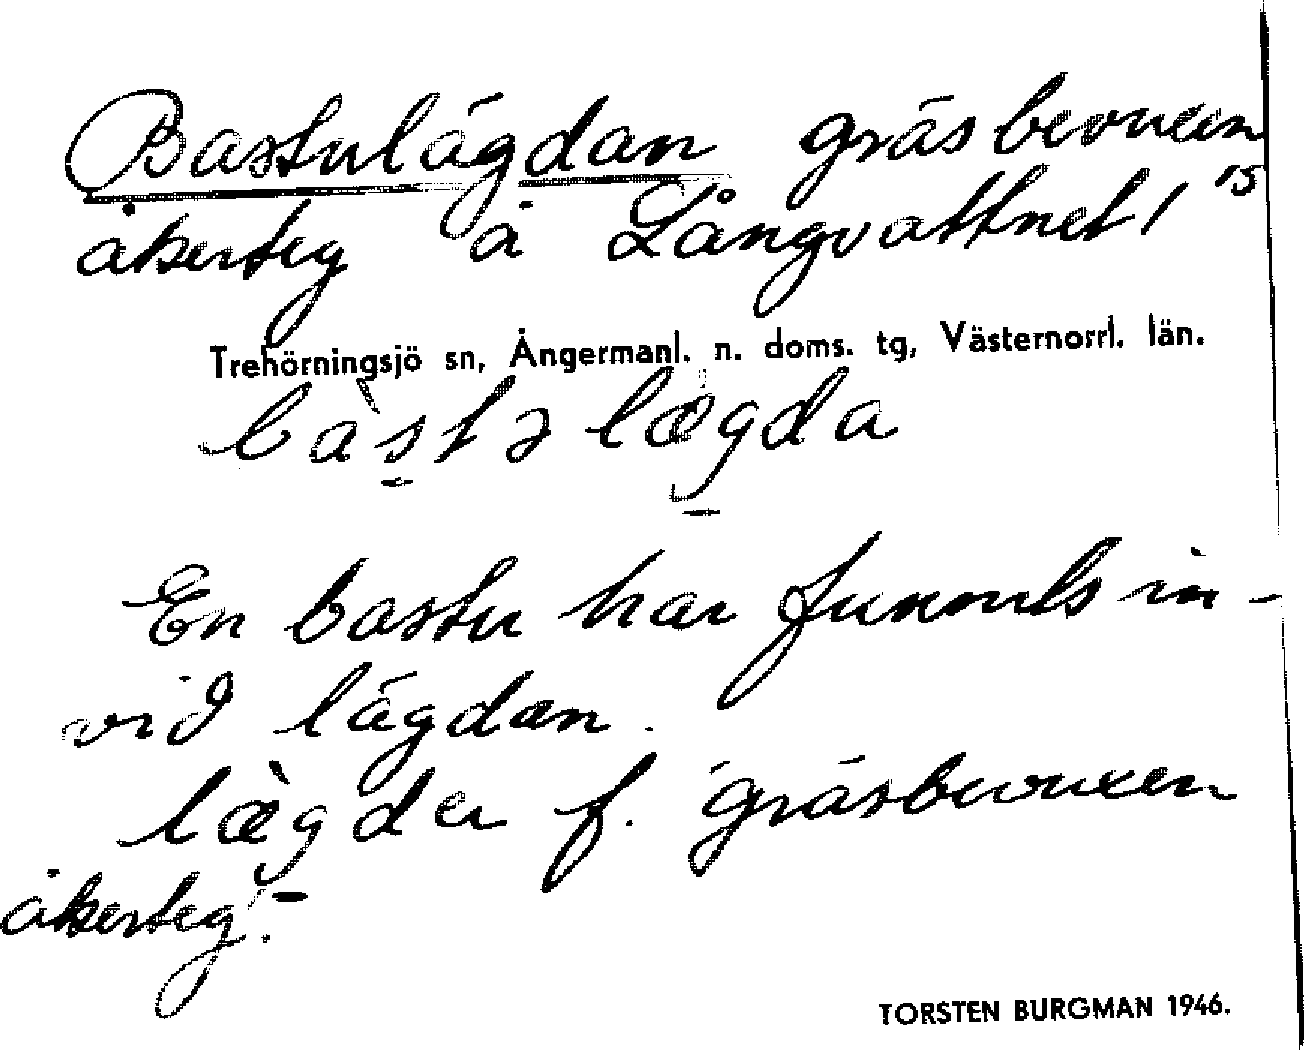 Bastulägdan gräsbevuxen
åkerteg å Långvattnet 1¹⁵
Trehörningsjö sn, Ångermanl. n. doms. tg, Västernorrl. län.
bàstəlægda
En bastu har funnits in-
vid lägdan.
lægder f. gräsbevuxen
åkerteg.
TORSTEN BURGMAN 1946.